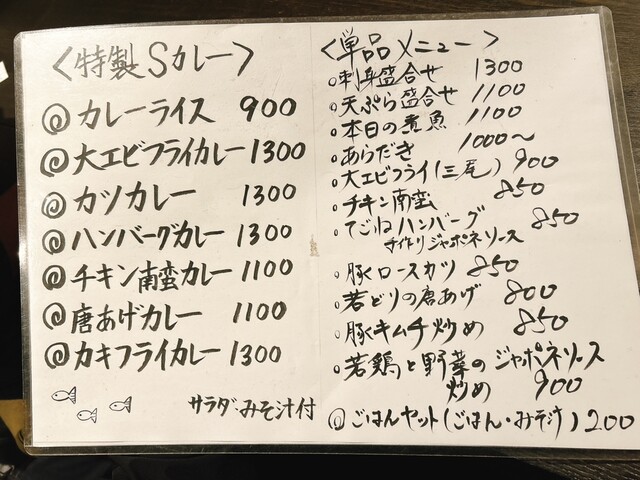 <特製Sカレー>
@カレーライス 900
@大エビフライカレー 1300
@カツカレー 1300
@ハンバーグカレー 1300
@チキン南蛮カレー 1100
@唐あげカレー 1100
@カキフライカレー 1300
サラダ・みそ汁付
<単品メニュー>
○刺身盛合せ 1300
○天ぷら盛合せ 1100
○本日の煮魚 1100
○あらだき 1000〜
○大エビフライ(三尾) 900
○チキン南蛮 850
○てごねハンバーグ 850
手作りジャポネソース
○豚ロースカツ 850
○若どりの唐あげ 800
○豚キムチ炒め 850
○若鶏と野菜のジャポネソース
炒め 900
@ごはんセット(ごはん・みそ汁) 200